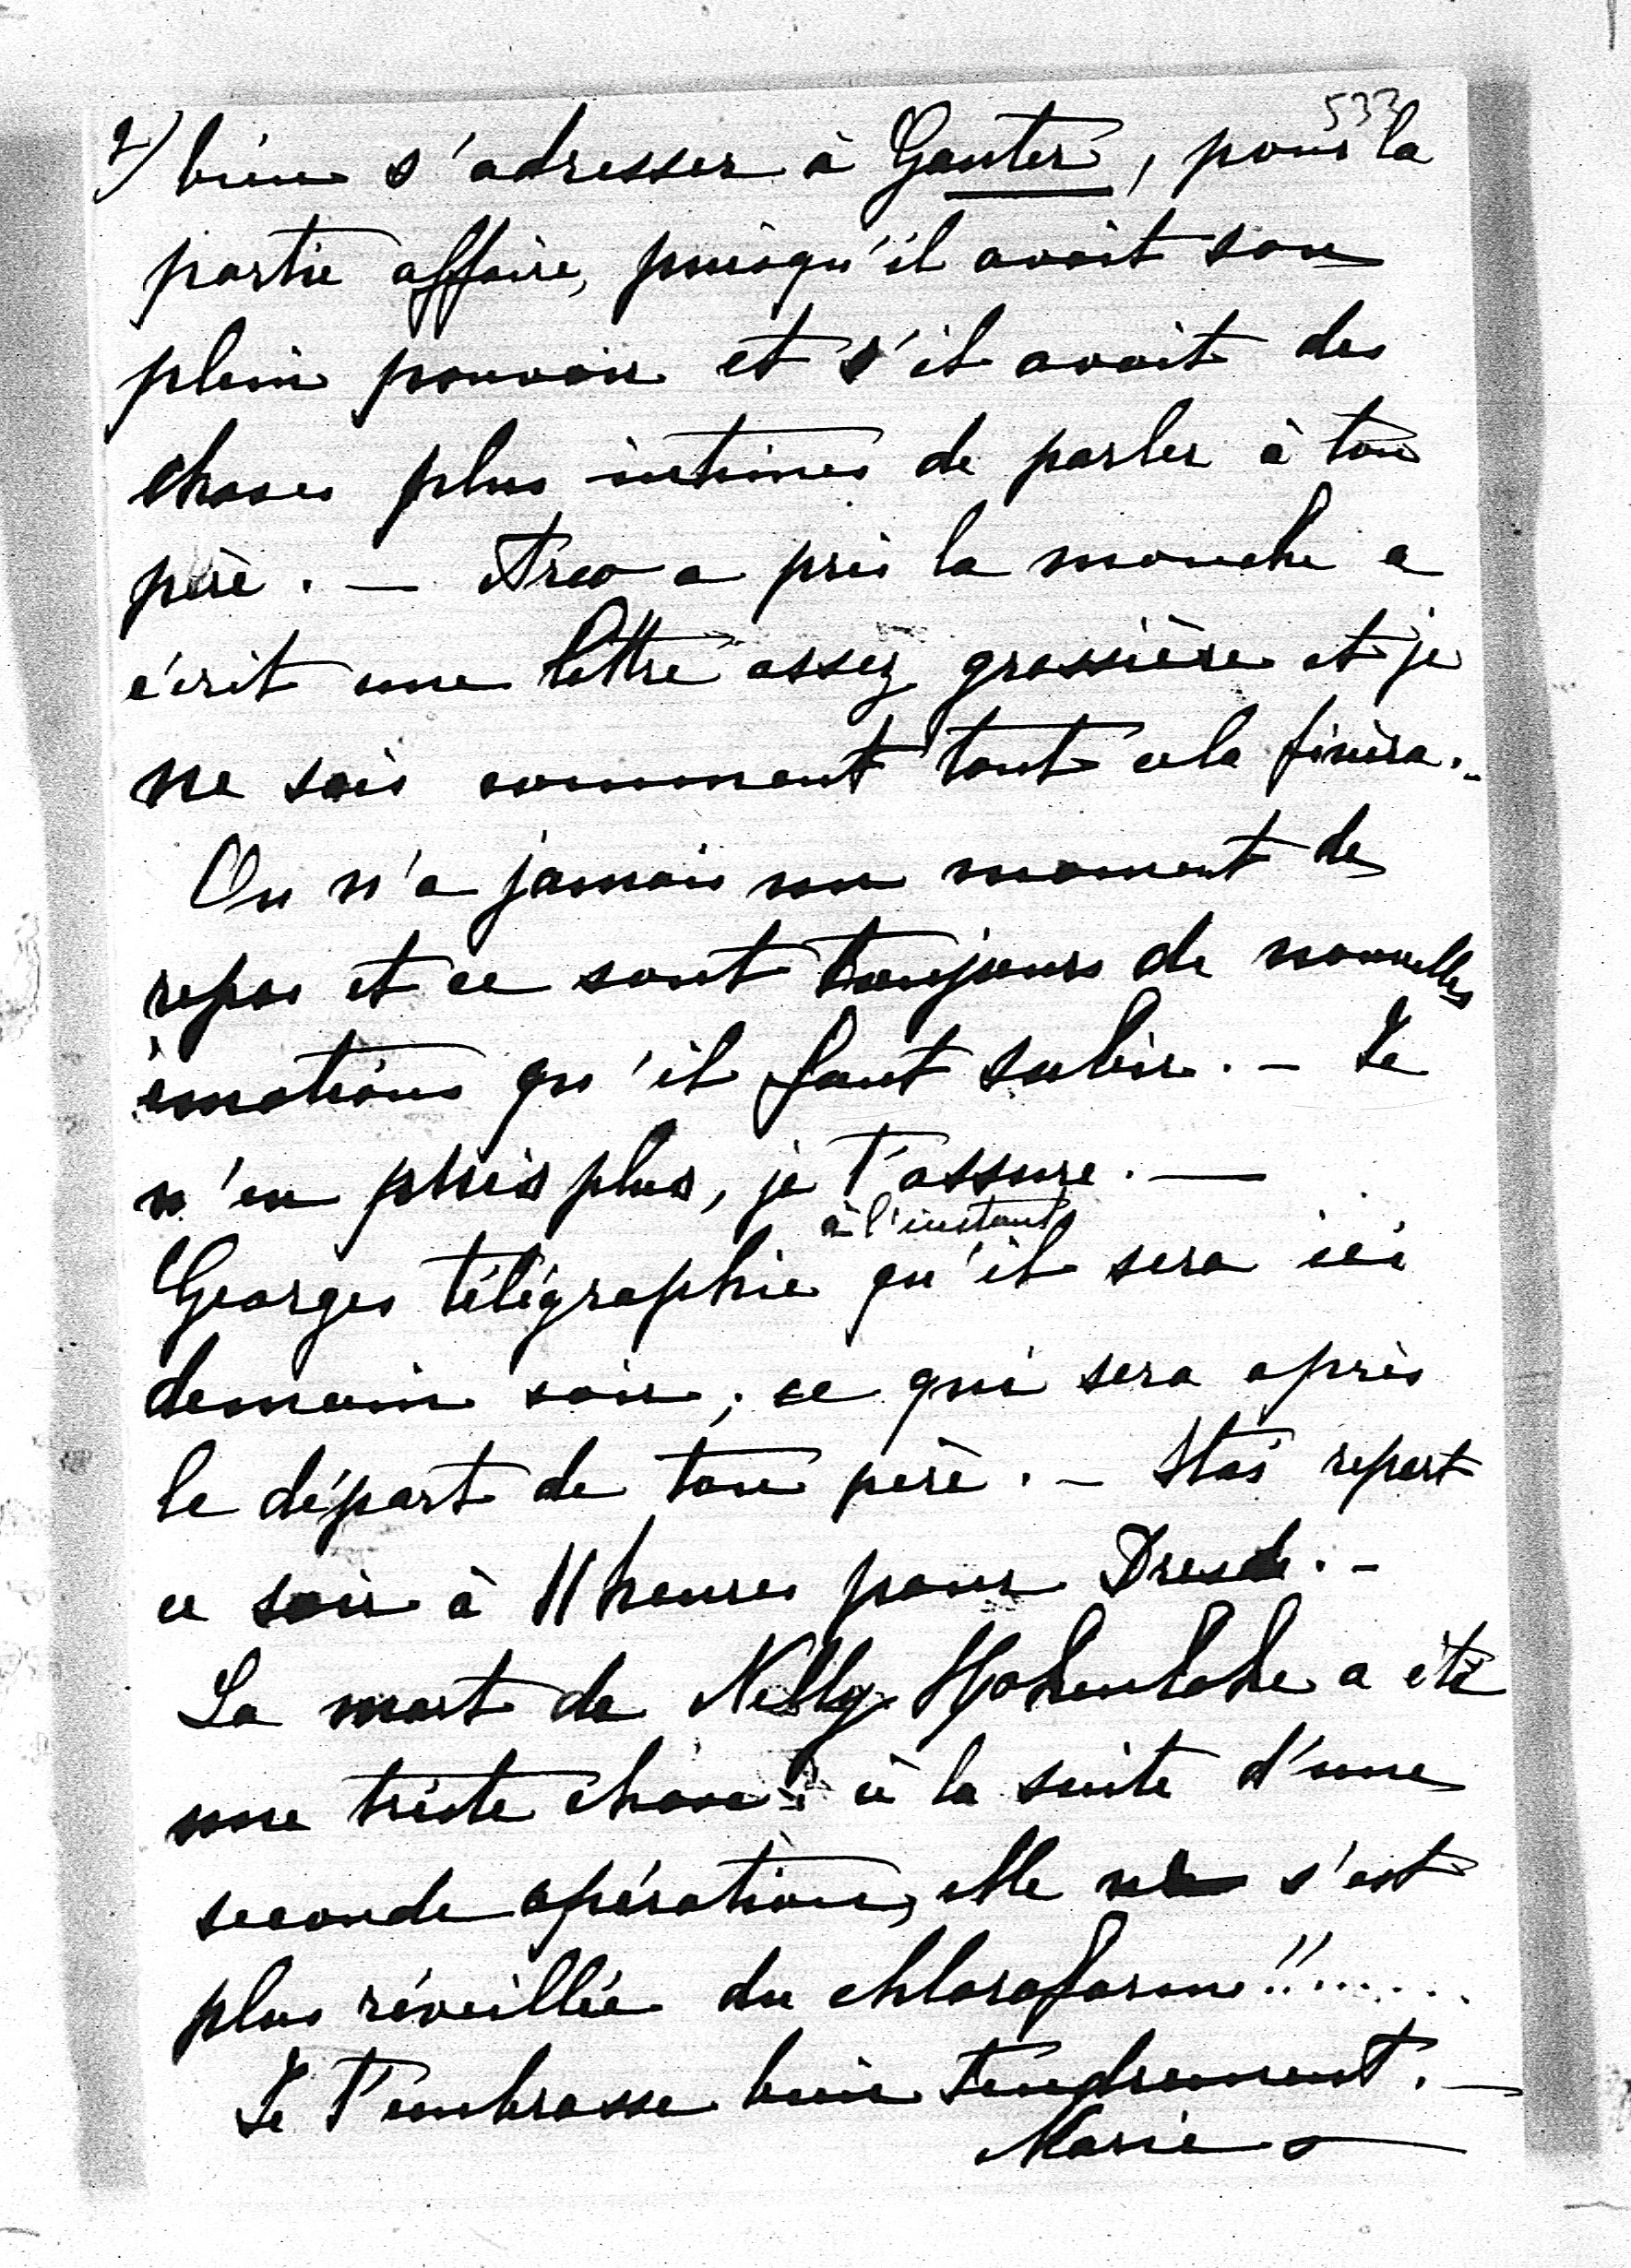 533
2) bien s'adresser à Ganter, pour la
partie affaire, puisqu'il avait son
plein pouvoir et s'il avait des
choses plus intimes de parler à ton
père. — Arco a pris la mouche a
écrit une lettre assez grossière et je
ne sais comment tout cela finira. -
On n'a jamais un moment de
repos et ce sont toujours de nouvelles
émotions qu'il faut subir. - Je
n'en puis plus, je t'assure. —
à l'instant
Georges télégraphie qu'il sera ici
demain soir; ce qui sera après
le départ de ton père. - Stas repart
ce soir à 11 heures pour Dresde. -
La mort de Nelly Hohenlohe a été
une triste chose: à la suite d'une
seconde opération, elle ne s'est
plus réveillée du chloroform!!......
Je t'embrasse bien tendrement. —
Marie